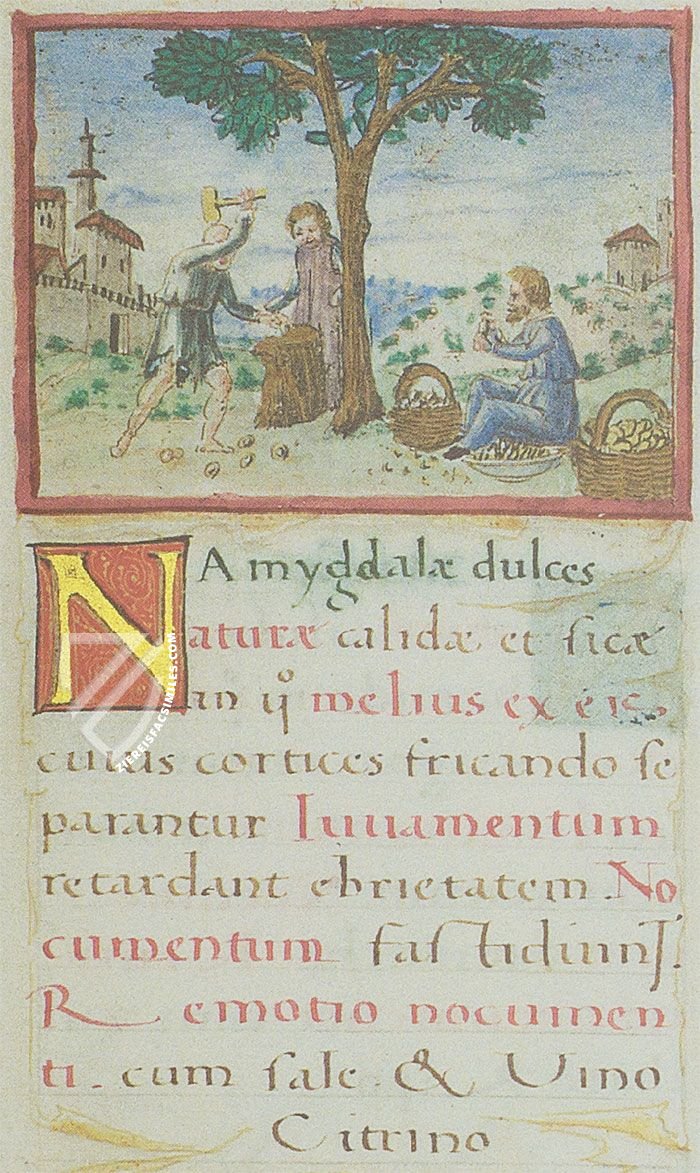 Amygdalæ dulces
Naturæ calidæ et sicæ
in ijº melius ex eis
cuius cortices fricando se
parantur Iuuamentum
retardant ebrietatem. No
cumentum fastidium.
Remotio nocumen
ti. cum sale. & Vino
Citrino
ZIEREISFACSIMILES.COM